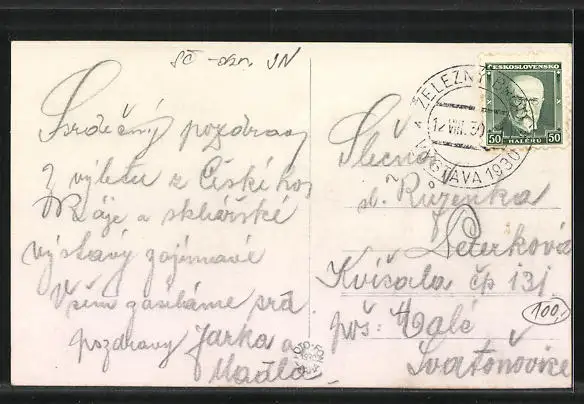 SČ - okr. JN
Srdečný pozdrav
z výletu z České
Ráje a sklářské
výstavy zajímavé
Všem zasíláme
pozdravy Jarka a
Madla.
ČESKOSLOVENSKO
50 HALÉŘŮ 50
ŽELEZNÝ BROD
12.VIII.30
VÝSTAVA 1930
Slečna
sl. Ruzenka
Peterková
Kvíčala čp 131
poš: Malé
Svatoňovice
100,-